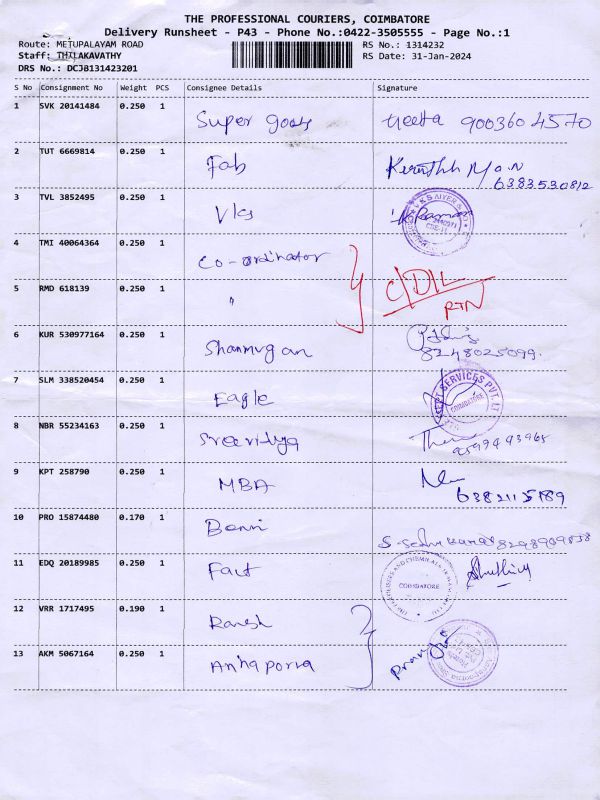 THE PROFESSIONAL COURIERS, COIMBATORE
Delivery Runsheet - P43 - Phone No.:0422-3505555 - Page No.:1
Route: METUPALAYAM ROAD RS No.: 1314232
Staff: THILAKAVATHY RS Date: 31-Jan-2024
DRS No.: DCJB131423201
S No Consignment No Weight PCS Consignee Details Signature
1 SVK 20141484 0.250 1 Super goods Geetha 9003604570
2 TUT 6669814 0.250 1 Fab
6383530812
3 TVL 3852495 0.250 1 Vks Raman
4 TMI 40064364 0.250 1 Co-ordinator
5 RMD 618139 0.250 1 " C/DIL
RTN
6 KUR 530977164 0.250 1 Shanmugam
8248025099.
7 SLM 338520454 0.250 1 Eagle
COIMBATORE
8 NBR 55234163 0.250 1 Sreevidya
9 KPT 258790 0.250 1 MBA
6382115189
10 PRO 15874480 0.170 1 Banni
11 EDQ 20189985 0.250 1 Fact
COIMBATORE
12 VRR 1717495 0.190 1 Ranesh
13 AKM 5067164 0.250 1 Annaporna